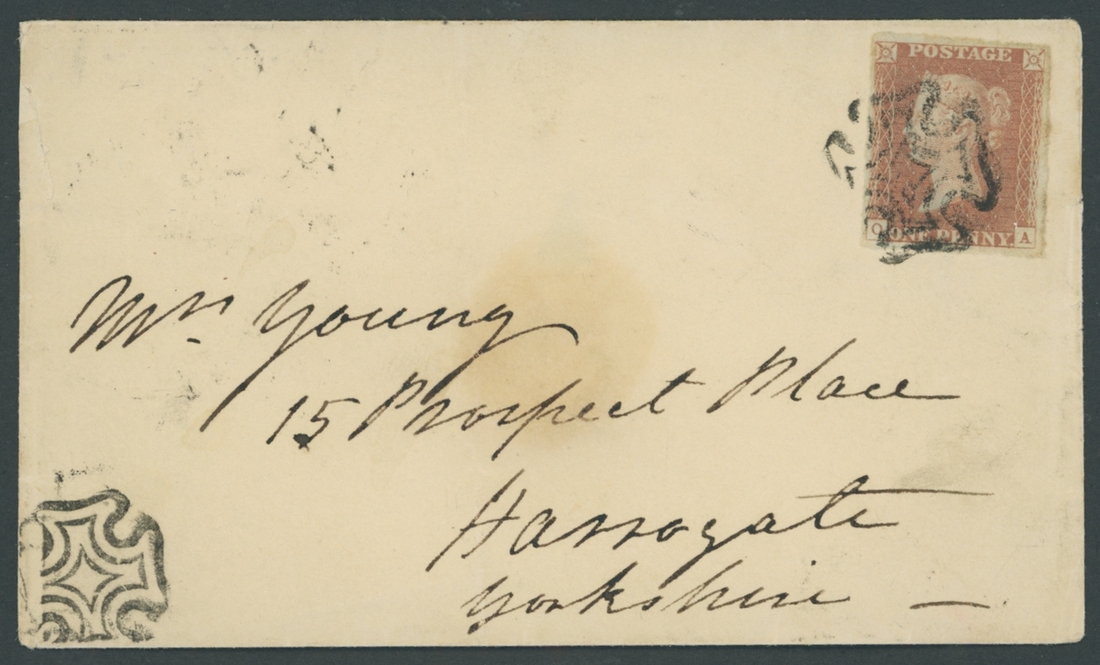 POSTAGE
O ONE PENNY A
Mrs Young
15 Prospect Place
Harrogate
Yorkshire —